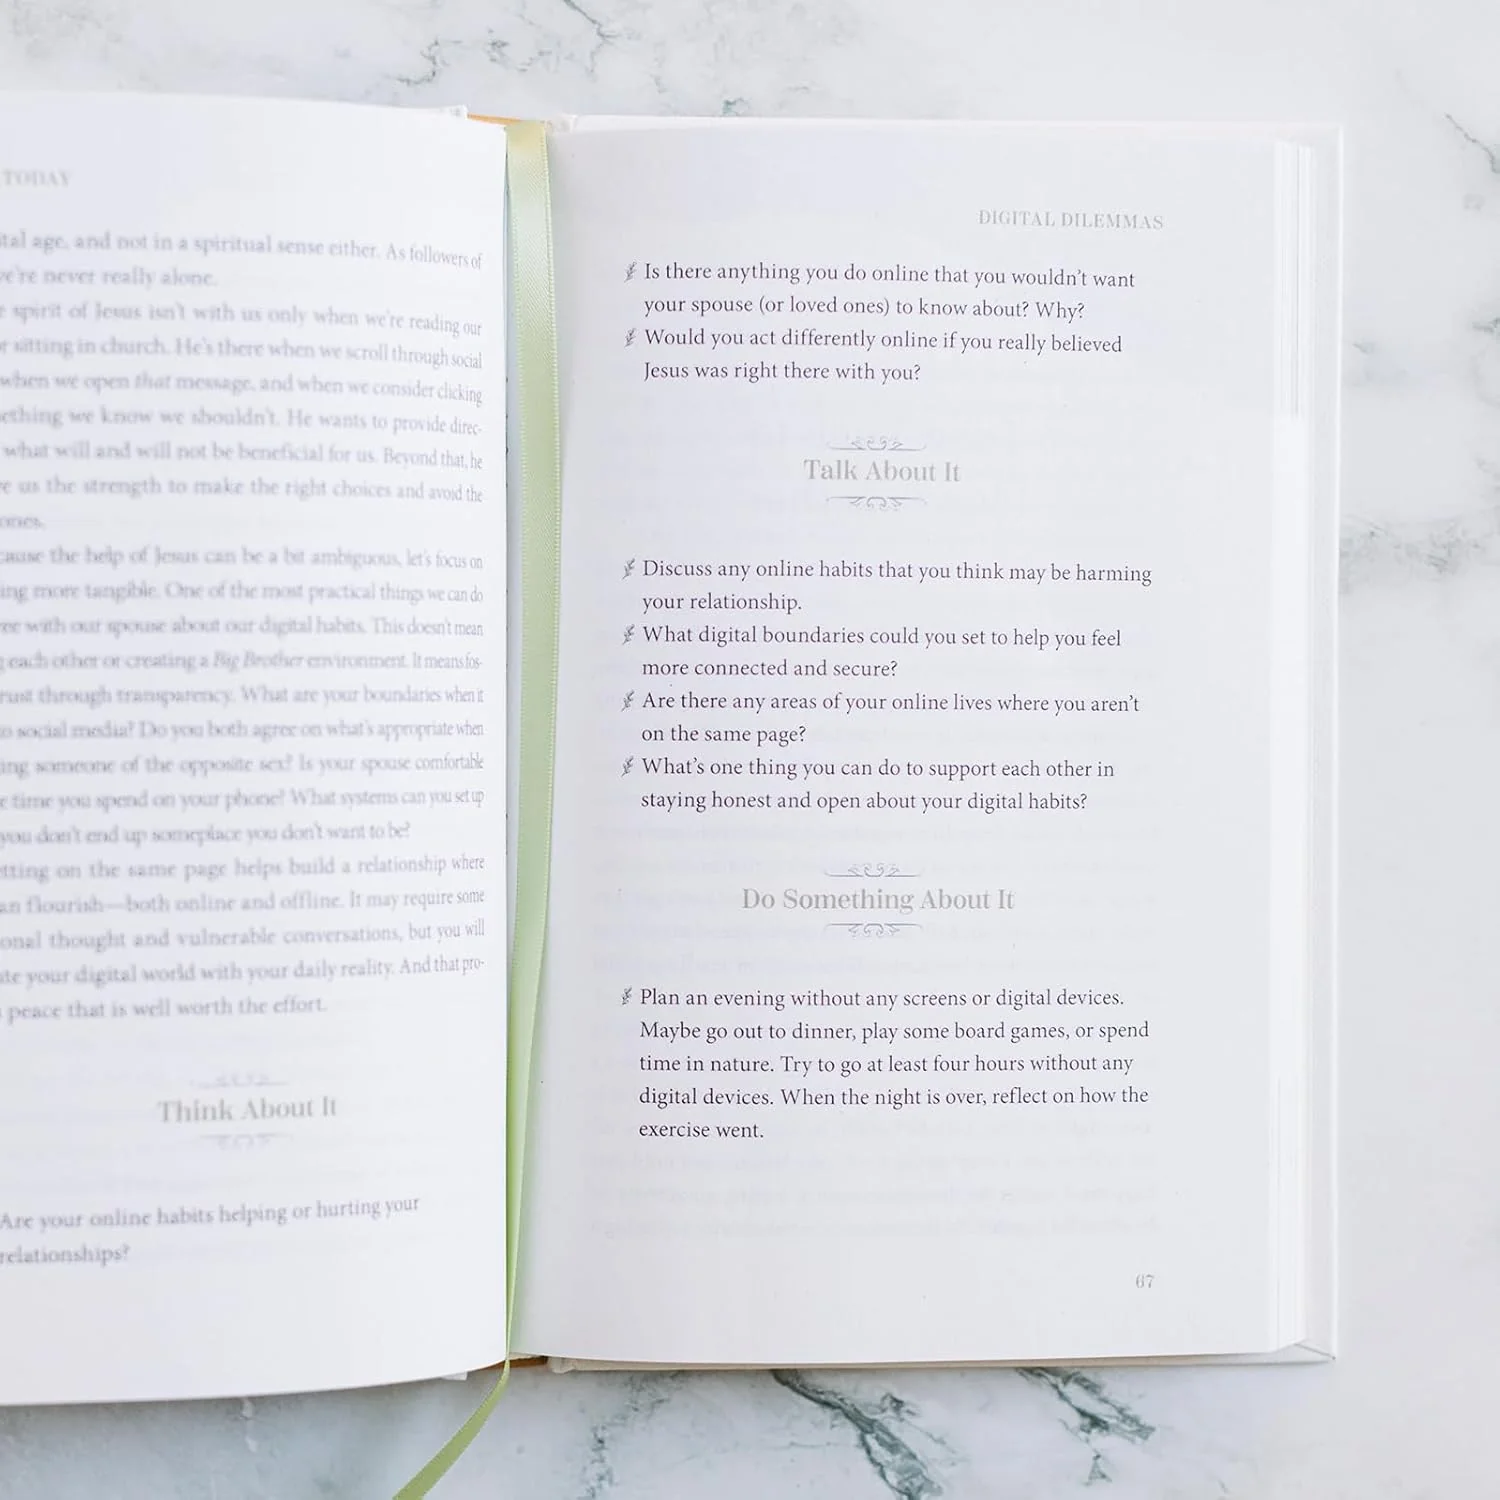 TODAY
tal age, and not in a spiritual sense either. As followers of
we're never really alone.
spirit of Jesus isn't with us only when we're reading our
or sitting in church. He's there when we scroll through social
when we open that message, and when we consider clicking
ething we know we shouldn't. He wants to provide direc-
what will and will not be beneficial for us. Beyond that, he
e us the strength to make the right choices and avoid the
ones.
cause the help of Jesus can be a bit ambiguous, let's focus on
ing more tangible. One of the most practical things we can do
ee with our spouse about our digital habits. This doesn't mean
g each other or creating a Big Brother environment. It means fos-
rust through transparency. What are your boundaries when it
o social media? Do you both agree on what's appropriate when
ing someone of the opposite sex? Is your spouse comfortable
e time you spend on your phone? What systems can you set up
you don't end up someplace you don't want to be?
tting on the same page helps build a relationship where
an flourish—both online and offline. It may require some
onal thought and vulnerable conversations, but you will
ate your digital world with your daily reality. And that pro-
peace that is well worth the effort.
Think About It
Are your online habits helping or hurting your
relationships?
DIGITAL DILEMMAS
Is there anything you do online that you wouldn't want
your spouse (or loved ones) to know about? Why?
Would you act differently online if you really believed
Jesus was right there with you?
Talk About It
Discuss any online habits that you think may be harming
your relationship.
What digital boundaries could you set to help you feel
more connected and secure?
Are there any areas of your online lives where you aren't
on the same page?
What's one thing you can do to support each other in
staying honest and open about your digital habits?
Do Something About It
Plan an evening without any screens or digital devices.
Maybe go out to dinner, play some board games, or spend
time in nature. Try to go at least four hours without any
digital devices. When the night is over, reflect on how the
exercise went.
67